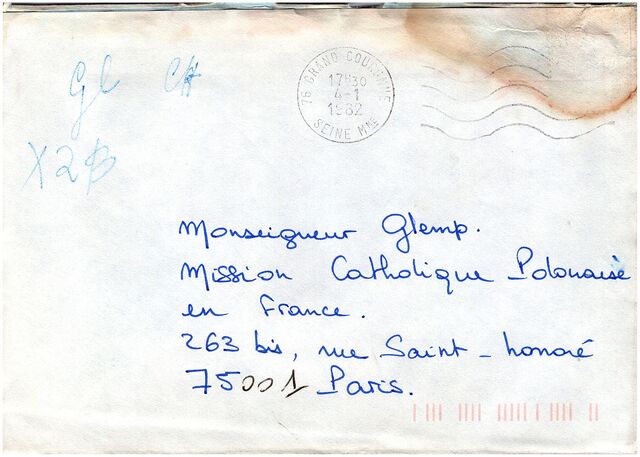 GL CH
X2B
76 GRAND COURONNE
17H30
4-1
1982
SEINE MME
Monseigneur Glemp.
Mission Catholique Polonaise
en France.
263 bis, rue Saint-honoré
75001 Paris.